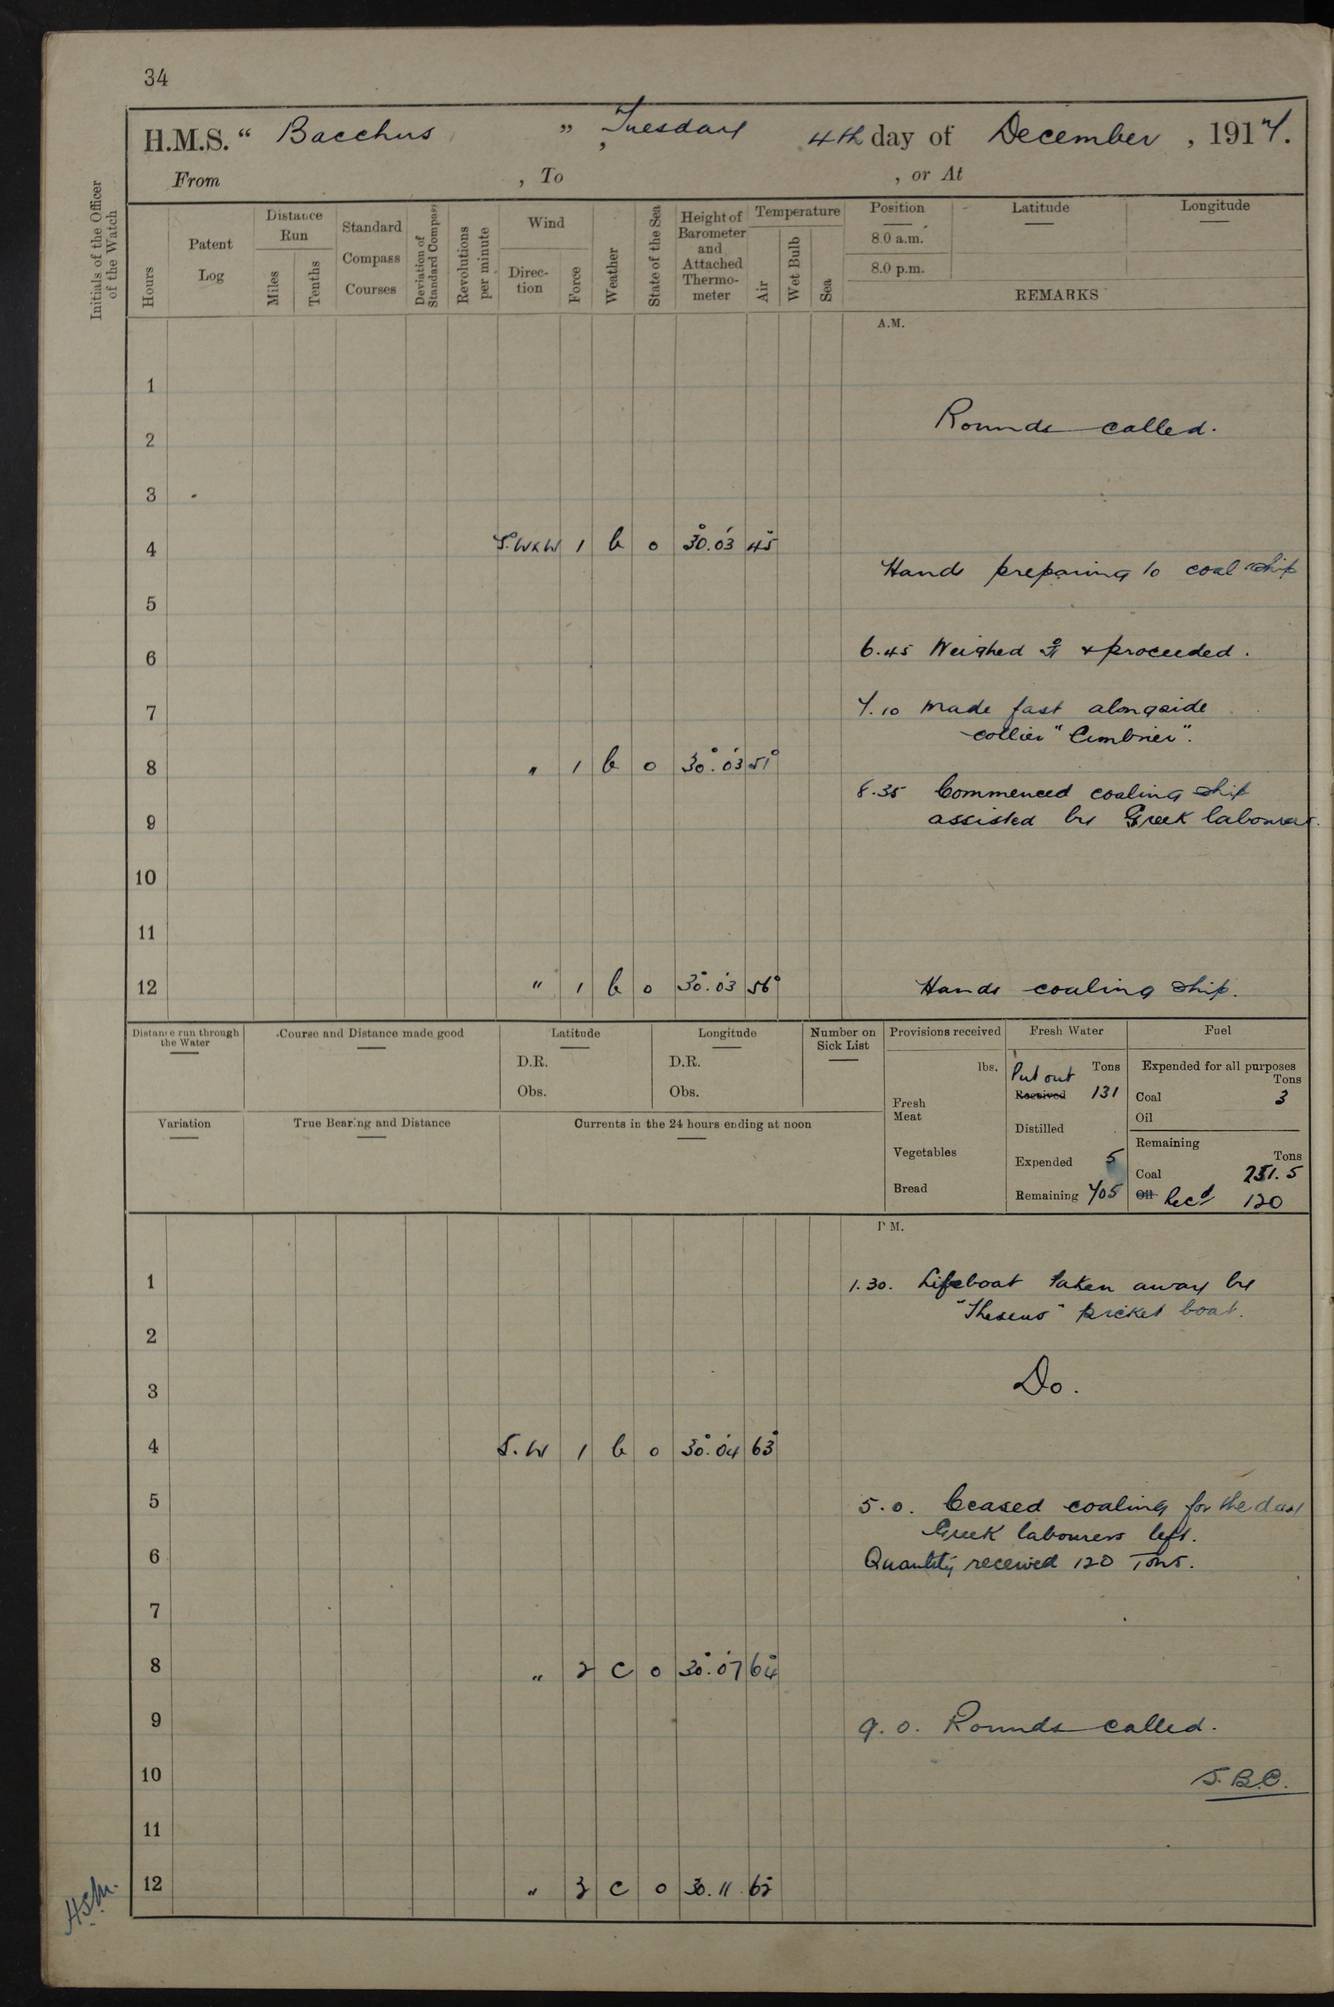 34
H.M.S. “ Bacchus ” , Tuesday 4th day of December , 1917.
From , To , or At
Initials of the Officer of the Watch
Hours
Patent Log
Distance Run
Miles
Tenths
Standard Compass Courses
Deviation of Standard Compass
Revolutions per minute
Wind
Direc- tion
Force
Weather
State of the Sea
Height of Barometer and Attached Thermo- meter
Temperature
Air
Wet Bulb
Sea
Position Latitude Longitude
8.0 a.m.
8.0 p.m.
REMARKS
A.M.
1
Rounds called.
2
3
4 S.W x W 1 b o 30.03 45
Hands preparing to coal ship
5
6 6.45 Weighed & proceeded.
7 7.10 Made fast alongside
collier "
8 " 1 b o 30.03 51°
8.35 Commenced coaling ship
9 assisted by Greek labourers.
10
11
12 " 1 b o 30.03 56° Hands coaling ship.
Distance run through the Water
Course and Distance made good
Latitude
D.R.
Obs.
Longitude
D.R.
Obs.
Number on Sick List
Provisions received
lbs.
Fresh Meat
Vegetables
Bread
Fresh Water
Put out Tons
Received 131
Distilled
Expended 5
Remaining 705
Fuel
Expended for all purposes
Tons
Coal 3
Oil
Remaining
Tons
Coal 251.5
Oil Recd 120
Variation
True Bearing and Distance
Currents in the 24 hours ending at noon
P.M.
1 1.30. Lifeboat taken away by
"Theseus" picket boat.
2
3 Do.
4 S.W 1 b o 30.04 63
5 5.0. Ceased coaling for the day
Greek labourers left.
6 Quantity received 120 Tons.
7
8 " 2 c o 30.07 64
9 9.0. Rounds called.
10 S.B.C.
11
12 " 3 c o 30.11 62